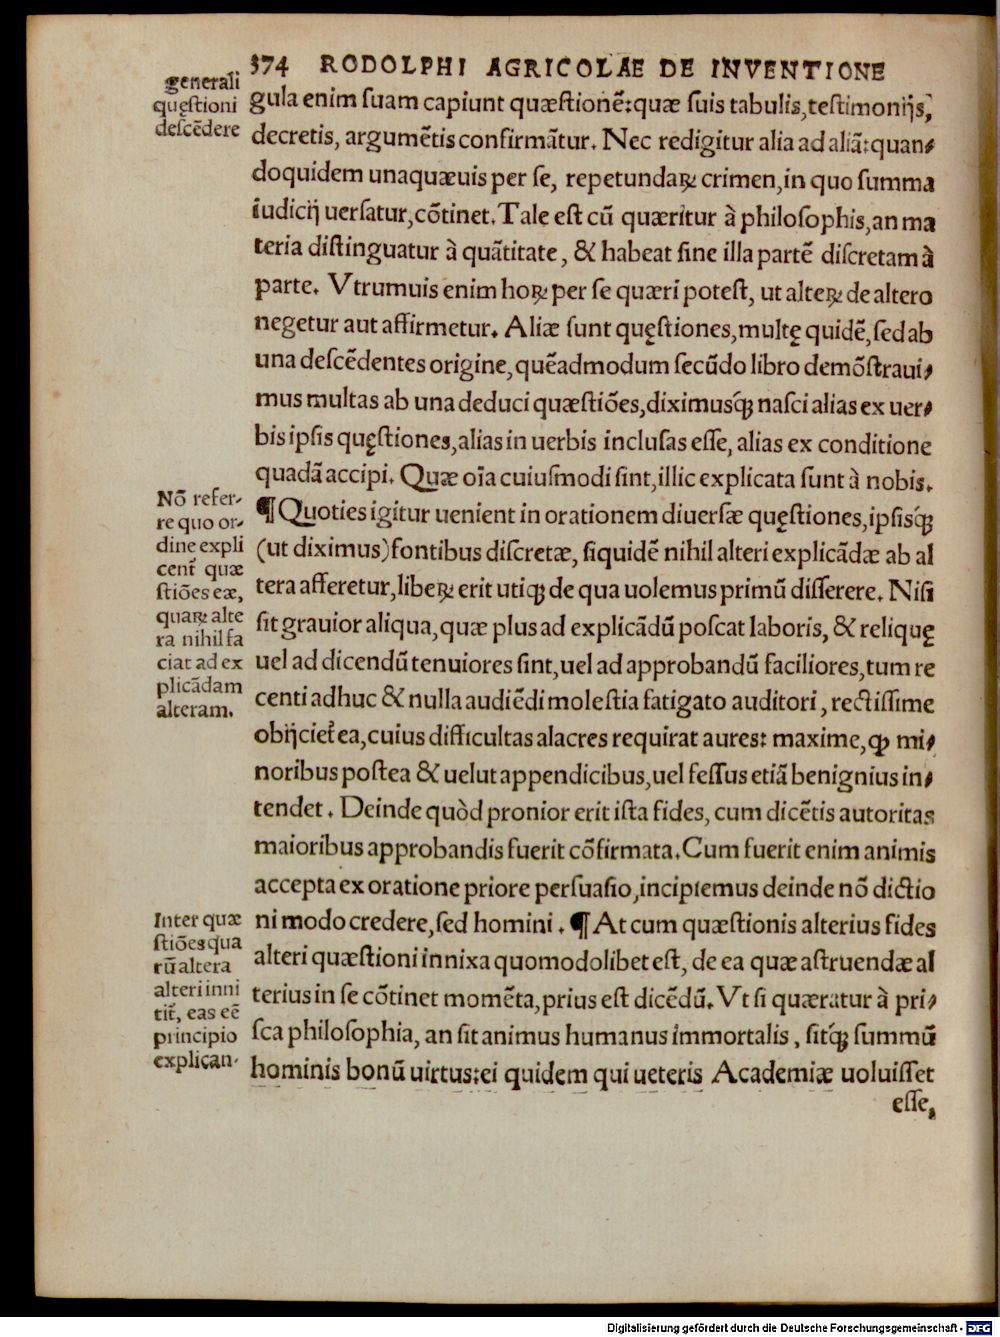 374 RODOLPHI AGRICOLAE DE INVENTIONE
generali
quęſtioni
deſcēdere
gula enim ſuam capiunt quæſtionē: quæ ſuis tabulis, teſtimonijs,
decretis, argumētis confirmātur. Nec redigitur alia ad aliā: quan⸗
doquidem unaquæuis per ſe, repetundaꝝ crimen, in quo ſumma
iudicij uerſatur, cōtinet. Tale eſt cū quæritur à philoſophis, an ma
teria diſtinguatur à quātitate, & habeat ſine illa partē diſcretam à
parte. Vtrumuis enim hoꝝ per ſe quæri poteſt, ut alteꝝ de altero
negetur aut affirmetur. Aliæ ſunt quęſtiones, multę quidē, ſed ab
una deſcēdentes origine, quēadmodum ſecūdo libro demōſtraui⸗
mus multas ab una deduci quæſtiōes, diximusq́ꝫ naſci alias ex uer⸗
bis ipſis quęſtiones, alias in uerbis incluſas eſſe, alias ex conditione
quadā accipi. Quæ oīa cuiuſmodi ſint, illic explicata ſunt à nobis.
Nō refer⸗
re quo or⸗
dine expli
cent̄ quæ
ſtiōes eæ,
quaꝝ alte
ra nihil fa
ciat ad ex
plicādam
alteram.
¶ Quoties igitur uenient in orationem diuerſæ quęſtiones, ipſisq́ꝫ
(ut diximus) fontibus diſcretæ, ſiquidē nihil alteri explicādæ ab al
tera afferetur, libeꝝ erit utiqꝫ de qua uolemus primū diſſerere. Niſi
ſit grauior aliqua, quæ plus ad explicādū poſcat laboris, & reliquę
uel ad dicendū tenuiores ſint, uel ad approbandū faciliores, tum re
centi adhuc & nulla audiēdi moleſtia fatigato auditori, rectiſſime
obijciet̄ ea, cuius difficultas alacres requirat aures: maxime, ꝙ mi⸗
noribus poſtea & uelut appendicibus, uel feſſus etiā benignius in⸗
tendet. Deinde quòd pronior erit iſta fides, cum dicētis autoritas
maioribus approbandis fuerit cōfirmata. Cum fuerit enim animis
accepta ex oratione priore perſuaſio, incipiemus deinde nō dictio
Inter quæ
ſtiōes qua
rū altera
alteri inni
tit̄, eas eē
principio
explican⸗
ni modo credere, ſed homini. ¶ At cum quæſtionis alterius fides
alteri quæſtioni innixa quomodolibet eſt, de ea quæ aſtruendæ al
terius in ſe cōtinet momēta, prius eſt dicēdū. Vt ſi quæratur à pri⸗
ſca philoſophia, an ſit animus humanus immortalis, ſitq́ꝫ ſummū
hominis bonū uirtus: ei quidem qui ueteris Academiæ uoluiſſet
eſſe,
Digitalisierung gefördert durch die Deutsche Forschungsgemeinschaft - DFG